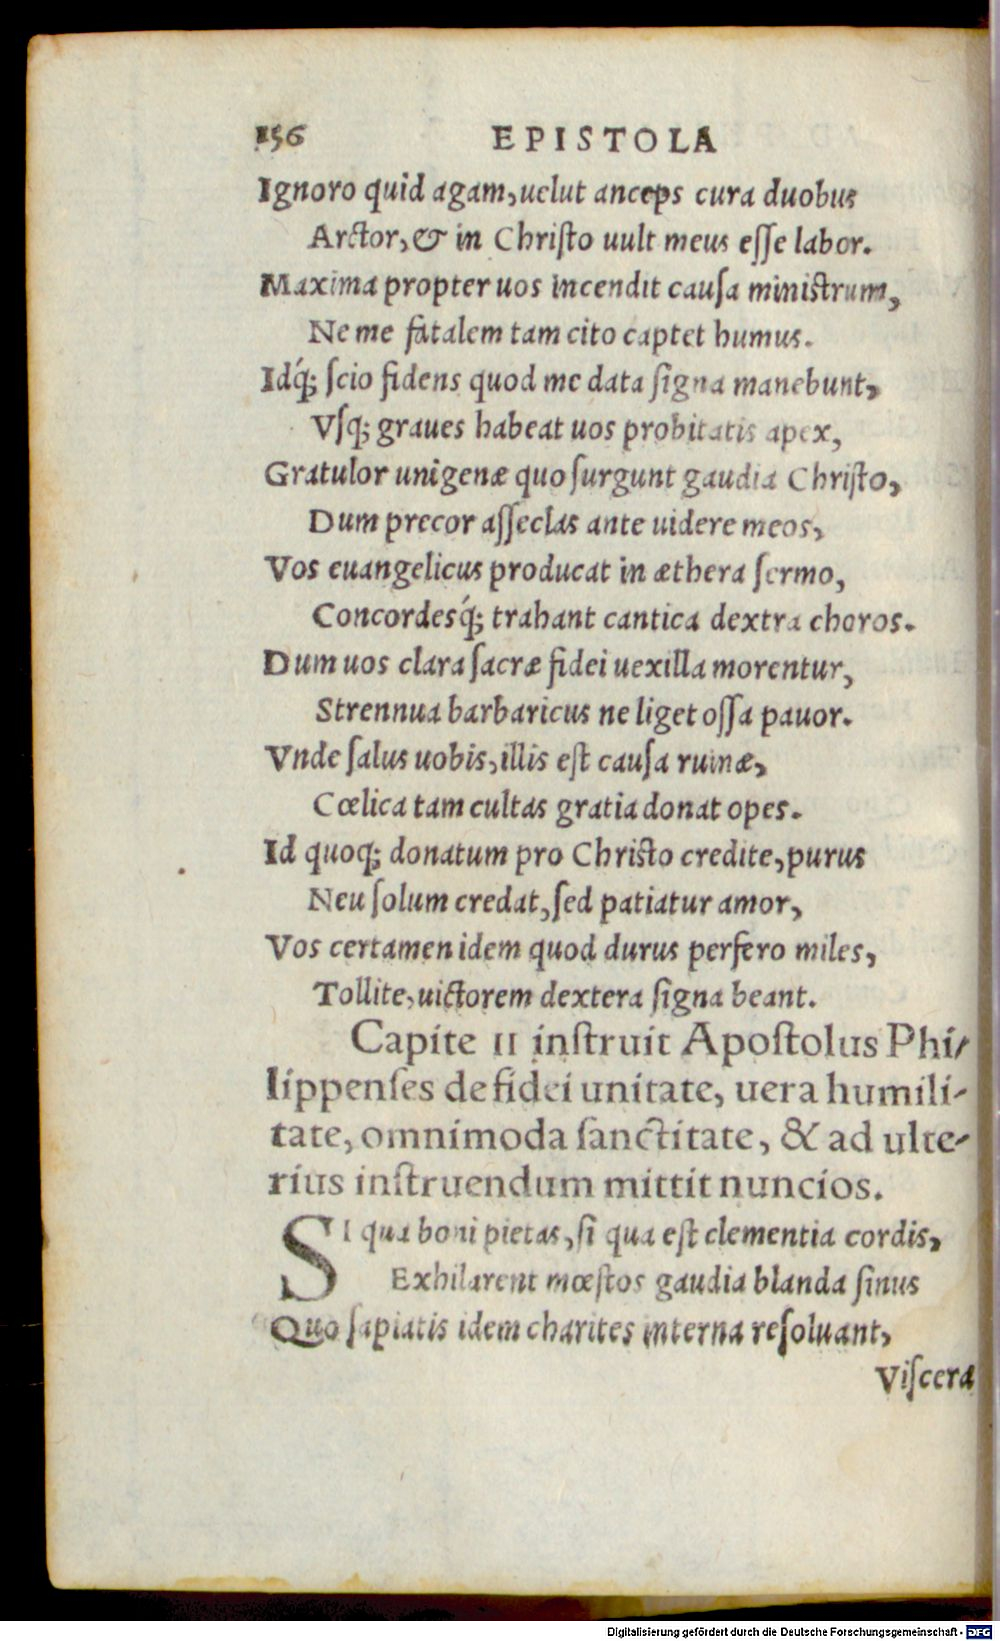 156 EPISTOLA
Ignoro quid agam, uelut anceps cura duobus
Arctor, & in Christo uult meus esse labor.
Maxima propter uos incendit causa ministrum,
Ne me fatalem tam cito captet humus.
Idq́; scio fidens quod me data signa manebunt,
Vsq; graues habeat uos probitatis apex,
Gratulor unigenæ quo surgunt gaudia Christo,
Dum precor asseclas ante uidere meos,
Vos euangelicus producat in æthera sermo,
Concordesq́; trahant cantica dextra choros.
Dum uos clara sacræ fidei uexilla morentur,
Strennua barbaricus ne liget ossa pauor.
Vnde salus uobis, illis est causa ruinæ,
Cœlica tam cultas gratia donat opes.
Id quoq; donatum pro Christo credite, purus
Neu solum credat, sed patiatur amor,
Vos certamen idem quod durus perfero miles,
Tollite, uictorem dextera signa beant.
Capite II instruit Apostolus Phi-
lippenses de fidei unitate, uera humili-
tate, omnimoda sanctitate, & ad ulte-
rius instruendum mittit nuncios.
SI qua boni pietas, si qua est clementia cordis,
Exhilarent mœstos gaudia blanda sinus
Quo sapiatis idem charites interna resoluant,
Viscera
Digitalisierung gefördert durch die Deutsche Forschungsgemeinschaft - DFG